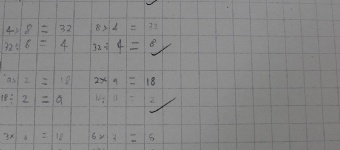 4× 8 = 32 8× 4 = 32
32÷ 8 = 4 32÷ 4 = 8
2 = 18 2× 9 = 18
18÷ 2 = 9 = 2
3× = 18 6× 3 =